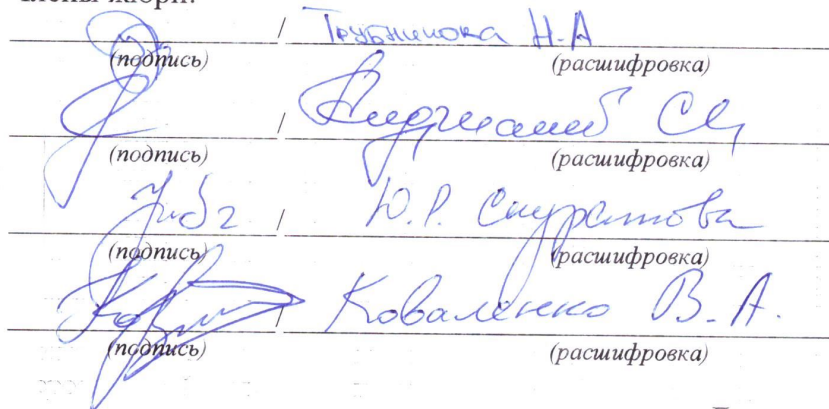 члены жюри:
/ Трубникова Н.А
(подпись) (расшифровка)
/
(подпись) (расшифровка)
/ Ю.Р. Скуратова
(подпись) (расшифровка)
/ Коваленко В.А.
(подпись) (расшифровка)